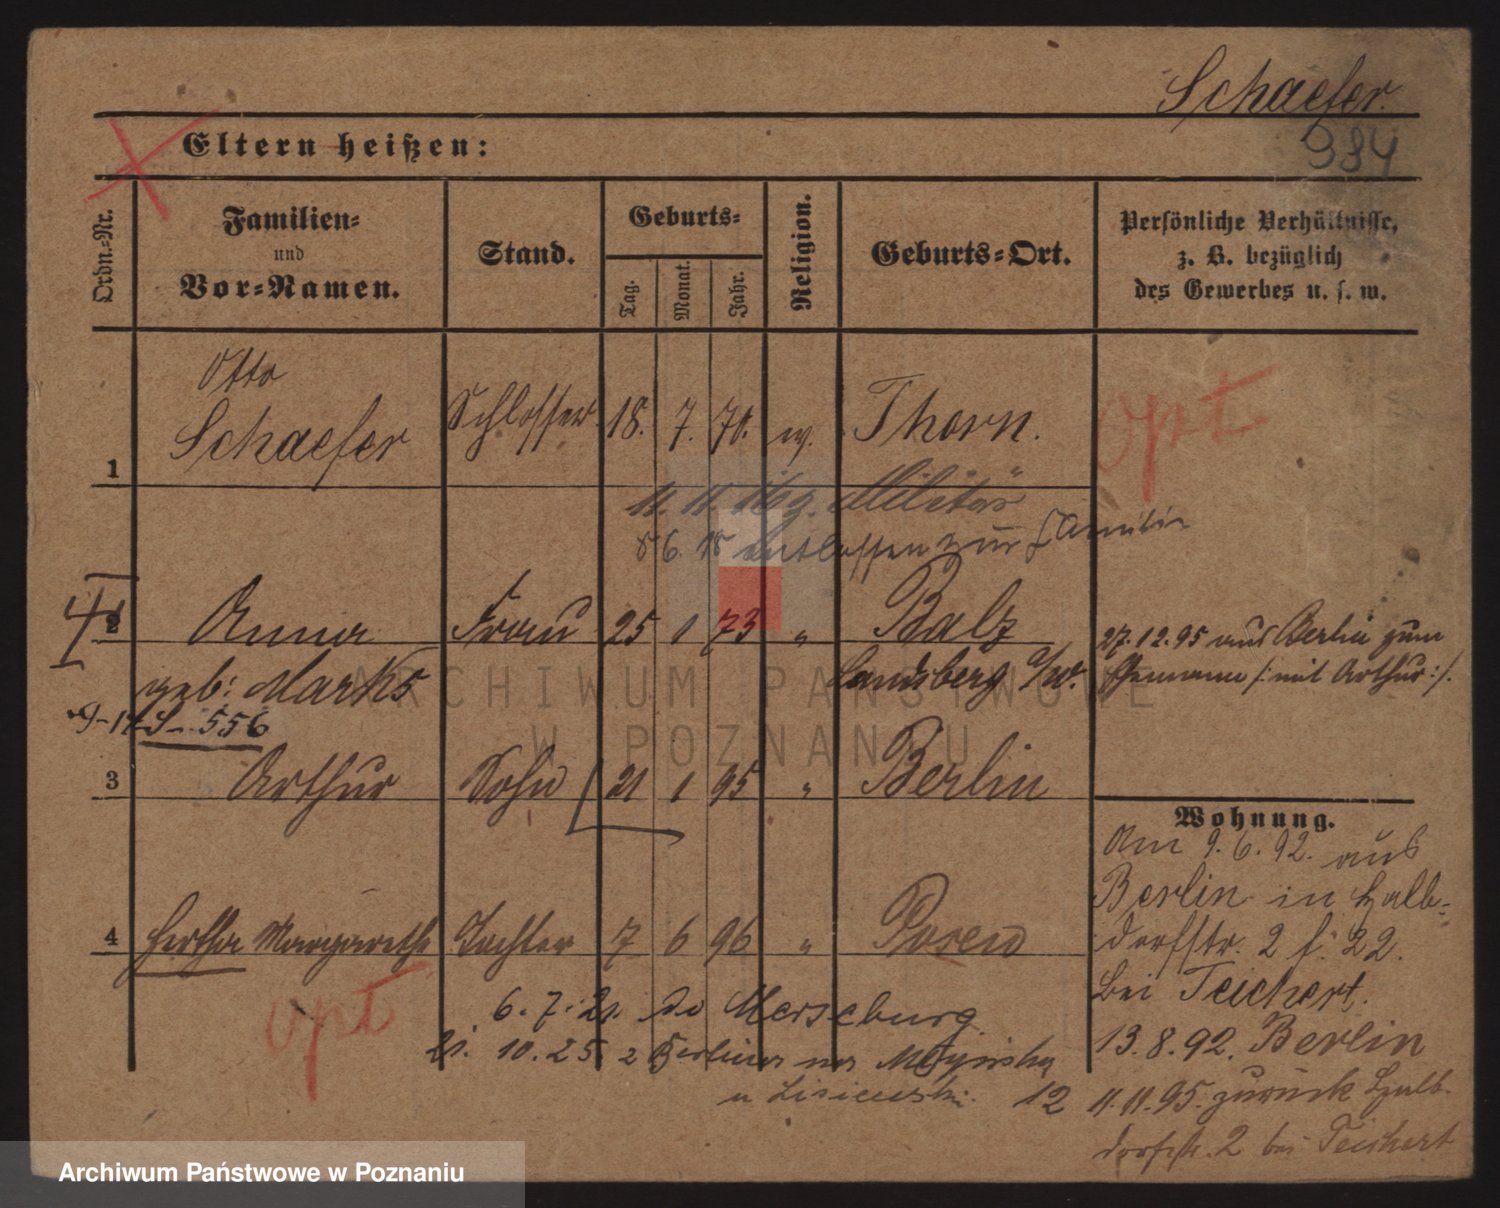 Schaefer.
984
Eltern heißen:
Ordn.-Nr.
Familien-
und
Vor-Namen.
Stand.
Geburts-
Tag.
Monat.
Jahr.
Religion.
Geburts-Ort.
Persönliche Verhältnisse,
z. B. bezüglich
des Gewerbes u. s. w.
1
Otto
Schaefer
Schlosser
18. 7. 70.
Thorn.
opt
11. 11. Militär
entlassen zur Familie
2
Anna
Frau
25 1 73
"
Balz
geb: Marks
Landsberg a/W.
27.12.95 aus Berlin zum
Ehemann /: mit Arthur :/.
S- 556
3
Arthur
Sohn
21 1 95
"
Berlin
Wohnung.
Am 9. 6. 92. aus
Berlin in Halb-
dorfstr. 2 22.
bei Teichert.
13. 8. 92. Berlin
11. 11. 95. zurück Halb-
dorfstr. 2 bei Teichert
4
Hertha Margarethe
Tochter
7 6 96
"
Posen
opt
6. 7. 21. Merseburg.
21. 10. 25
12
ARCHIWUM PAŃSTWOWE
W POZNANIU
Archiwum Państwowe w Poznaniu